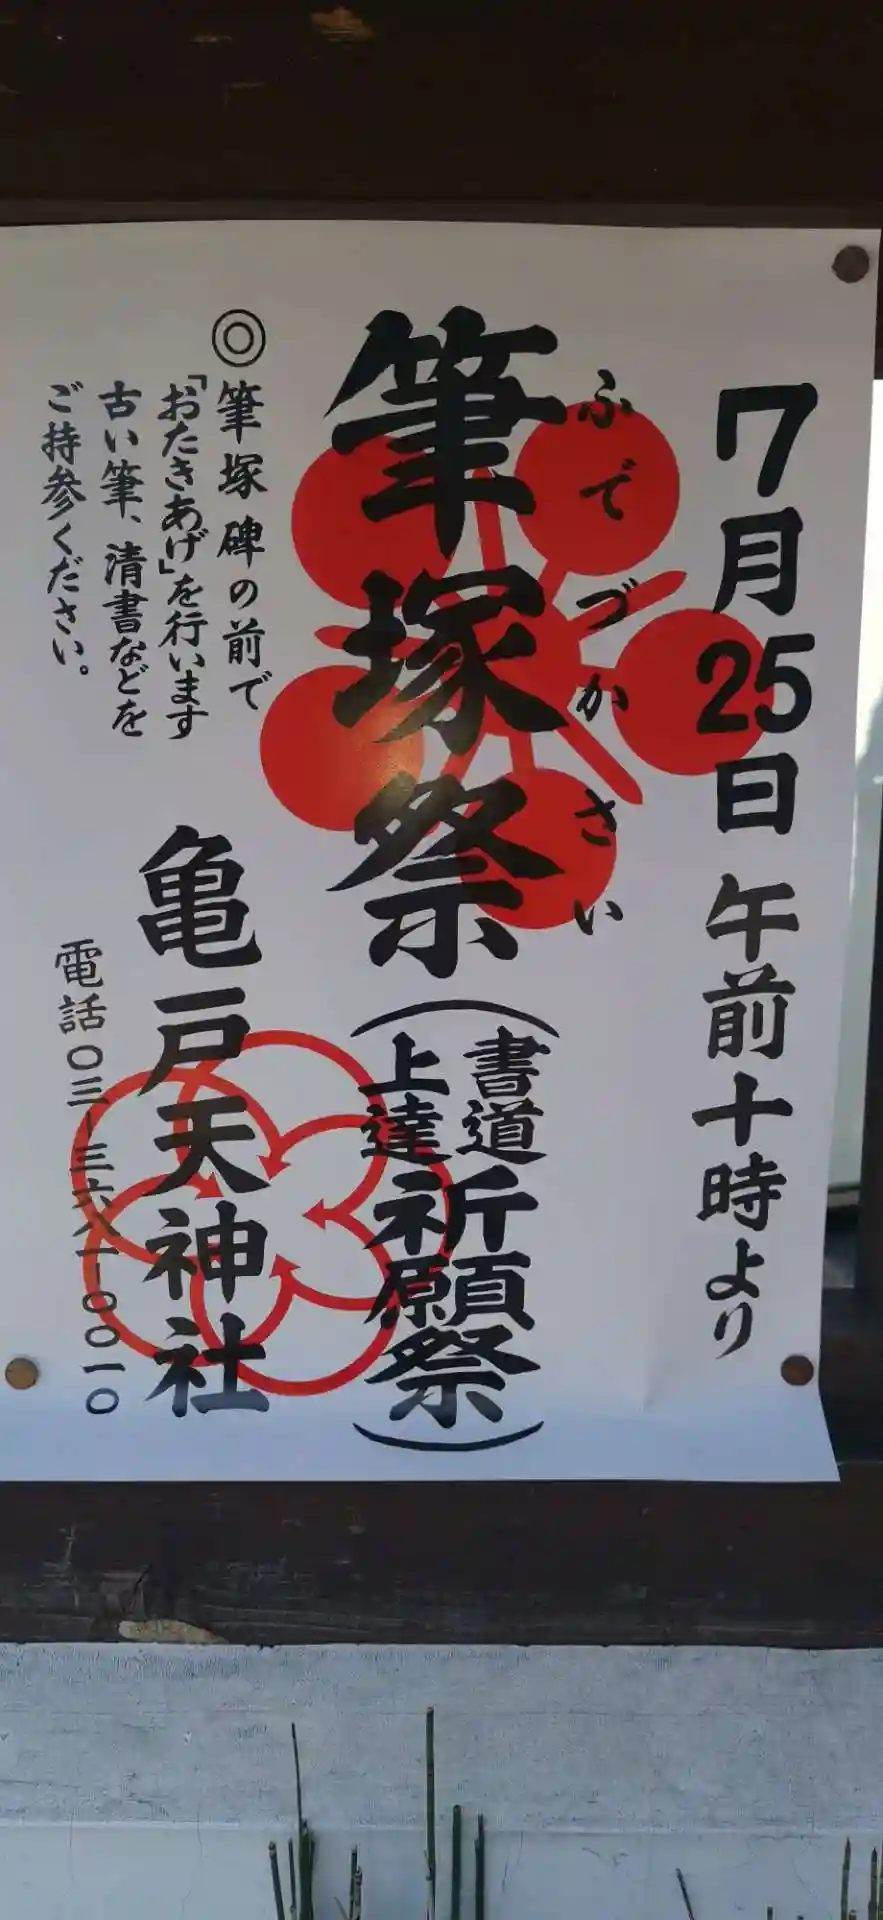 7月25日 午前十時より
ふでづかさい
筆塚祭
(書道上達祈願祭)
◎筆塚碑の前で
「おたきあげ」を行います
古い筆、清書などを
ご持参ください。
亀戸天神社
電話〇三-三六八一-〇〇一〇